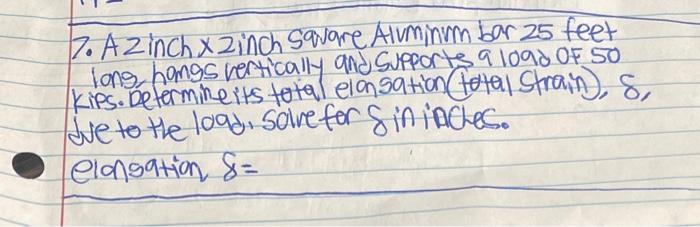 7. A 2 inch x 2 inch Square Aluminum bar 25 feet
long, hangs vertically and supports a load of 50
Kips. Determine its total elongation (total strain), δ,
due to the load. Solve for δ in inches.
elongation, δ=